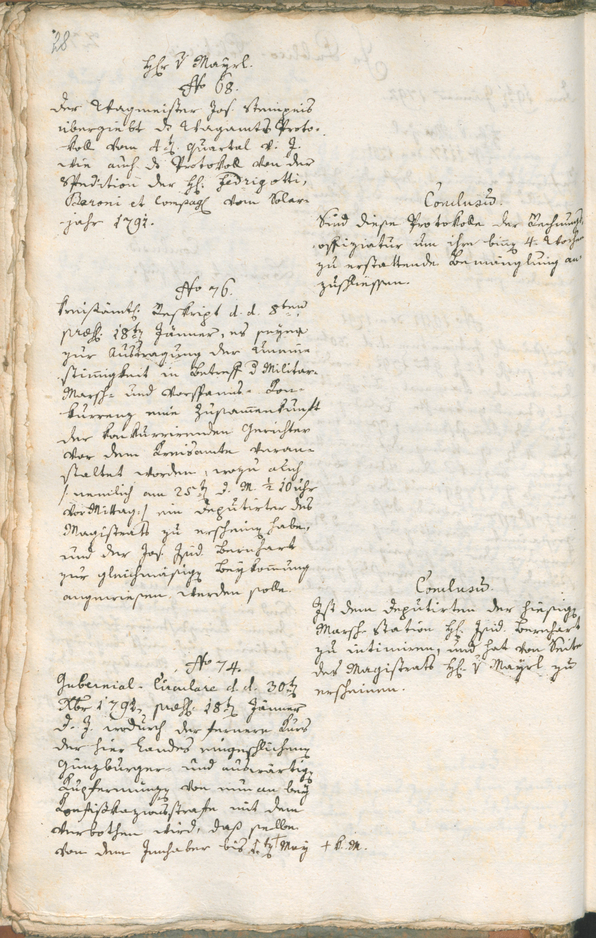 28
Hr. v Mayrl.
No 68.
Der Wagmeister Jos. Steinpeis
übergiebt ds Wagamts Proto-
koll vom 4tn Quartal v. J.
wie auch ds Protokoll von der
Spedition der H. Fedrigotti,
Baroni et Compagn. vom Solar-
jahr 1791.
Conclusu.
Sind diese Protokolle der Rechnungs-
offiziatur um ihre binn 4. Wochen
zu erstattende Bemänglung an-
zuschliessen.
No 76.
Kreisämtl. Reskript d. d. 8ten
praes. 18tn Jänner, es seyen
zur Austragung der Uneine-
stimmigkeit in Betreff d Militar-
Marsch- und Vorspanns-Kon-
kurrenz eine Zusammenkunft
der konkurrirenden Gerichter
vor dem Kreisamte veran-
staltet worden, wozu alich
/: nemlich am 25tn d. M. ½ 10 Uhr
Vormittag :/ ein Deputirter des
Magistrats zu erscheinen habe,
und der Jos. Isid. Bernhart
zur gleichmäsigen Beykommung
angewiesen werden solle.
Conclusu.
Ist dem Deputirten der hiesigen
Marsch Station H. Isid. Bernhart
zu intimiren, und hat von Seite
des Magistrats H. v Mayrl zu
erscheinen.
No 74.
Gubernial-Circulare d. d. 30tn
Xbr 1791, praes. 18tn Jänner
d. J. wodurch der fernere Kurs
der hier Landes eingeschlichenen
Günzburger- und auswärtigen
Kupfermünzen von nun an bey
Konfiskazionsstrafe mit dem
verbothen wird, daß selbe
von dem Innhaber bis 1tn May + k. M.